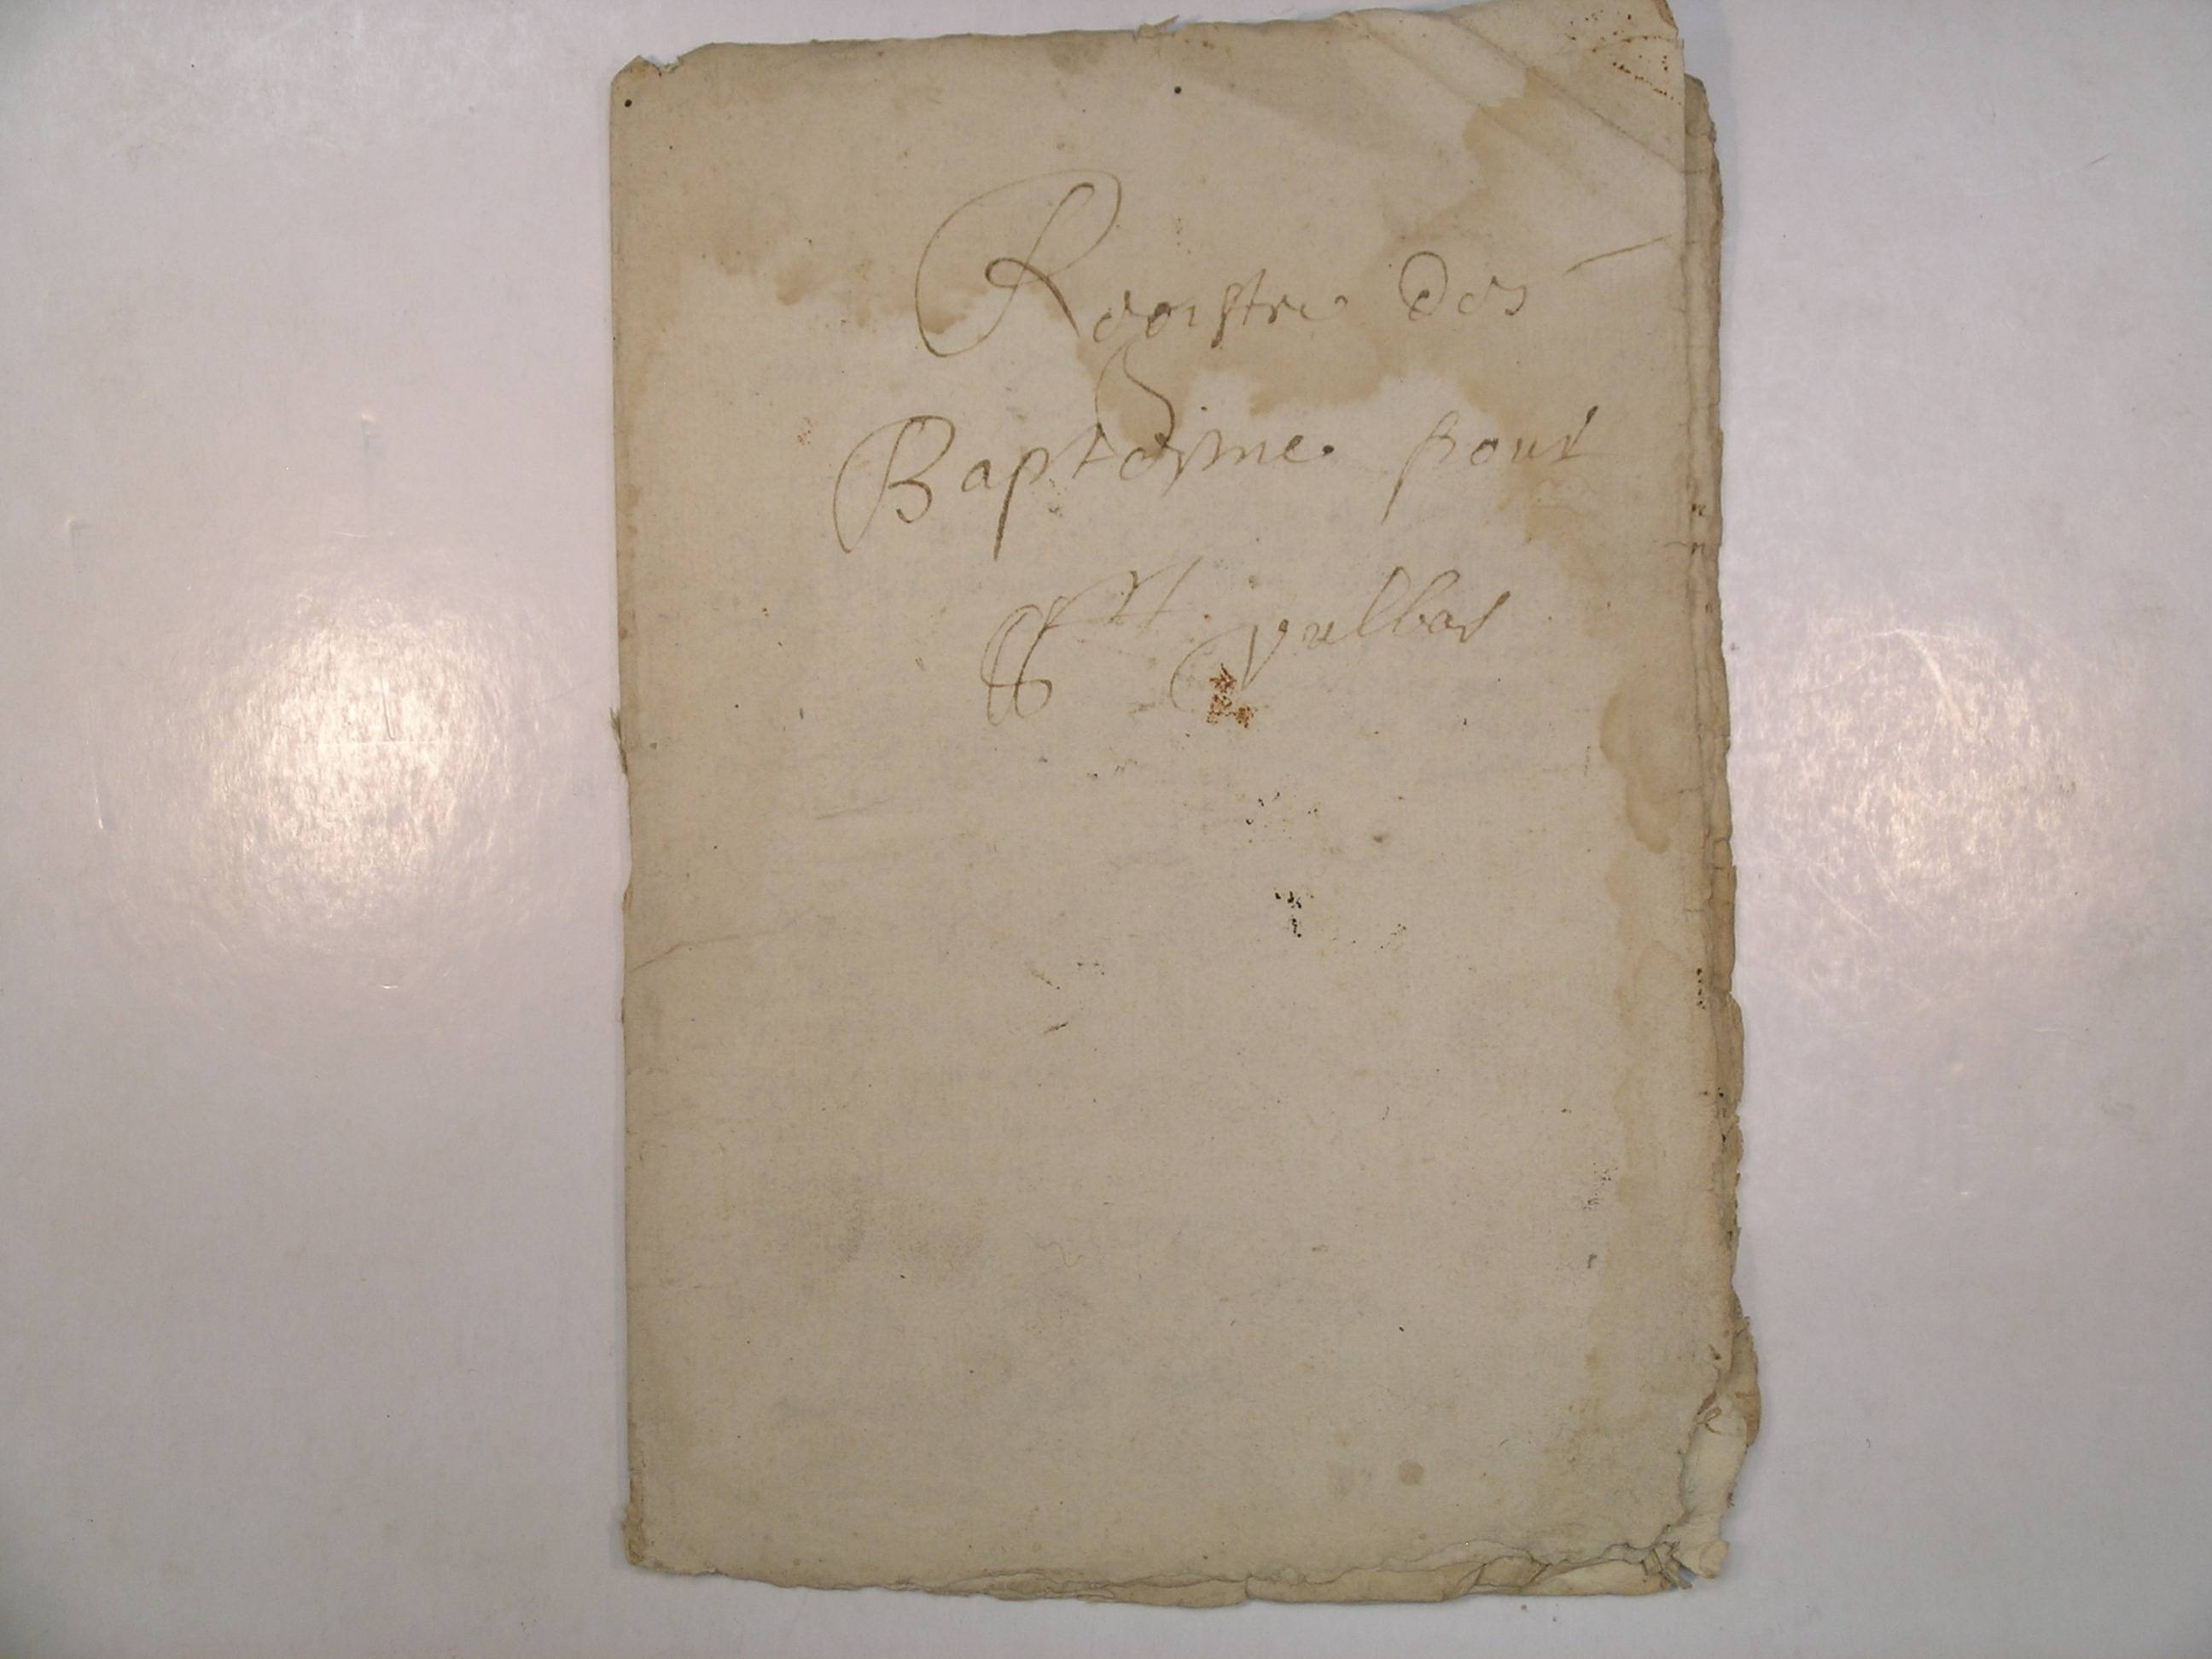 Registre des
Baptesme pour
St vulbas